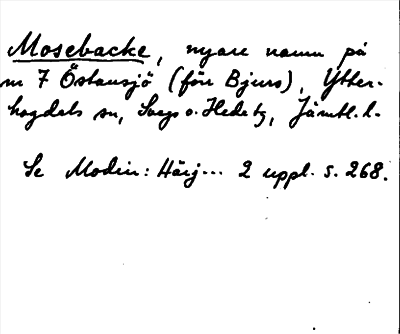 Mosebacke, nyare namn på
nr 7 Östansjö (förr Bjurs), Ytter-
hogdals sn, Svegs o. Hede tg, Jämtl. l.
Se Modin: Härj... 2 uppl. s. 268.